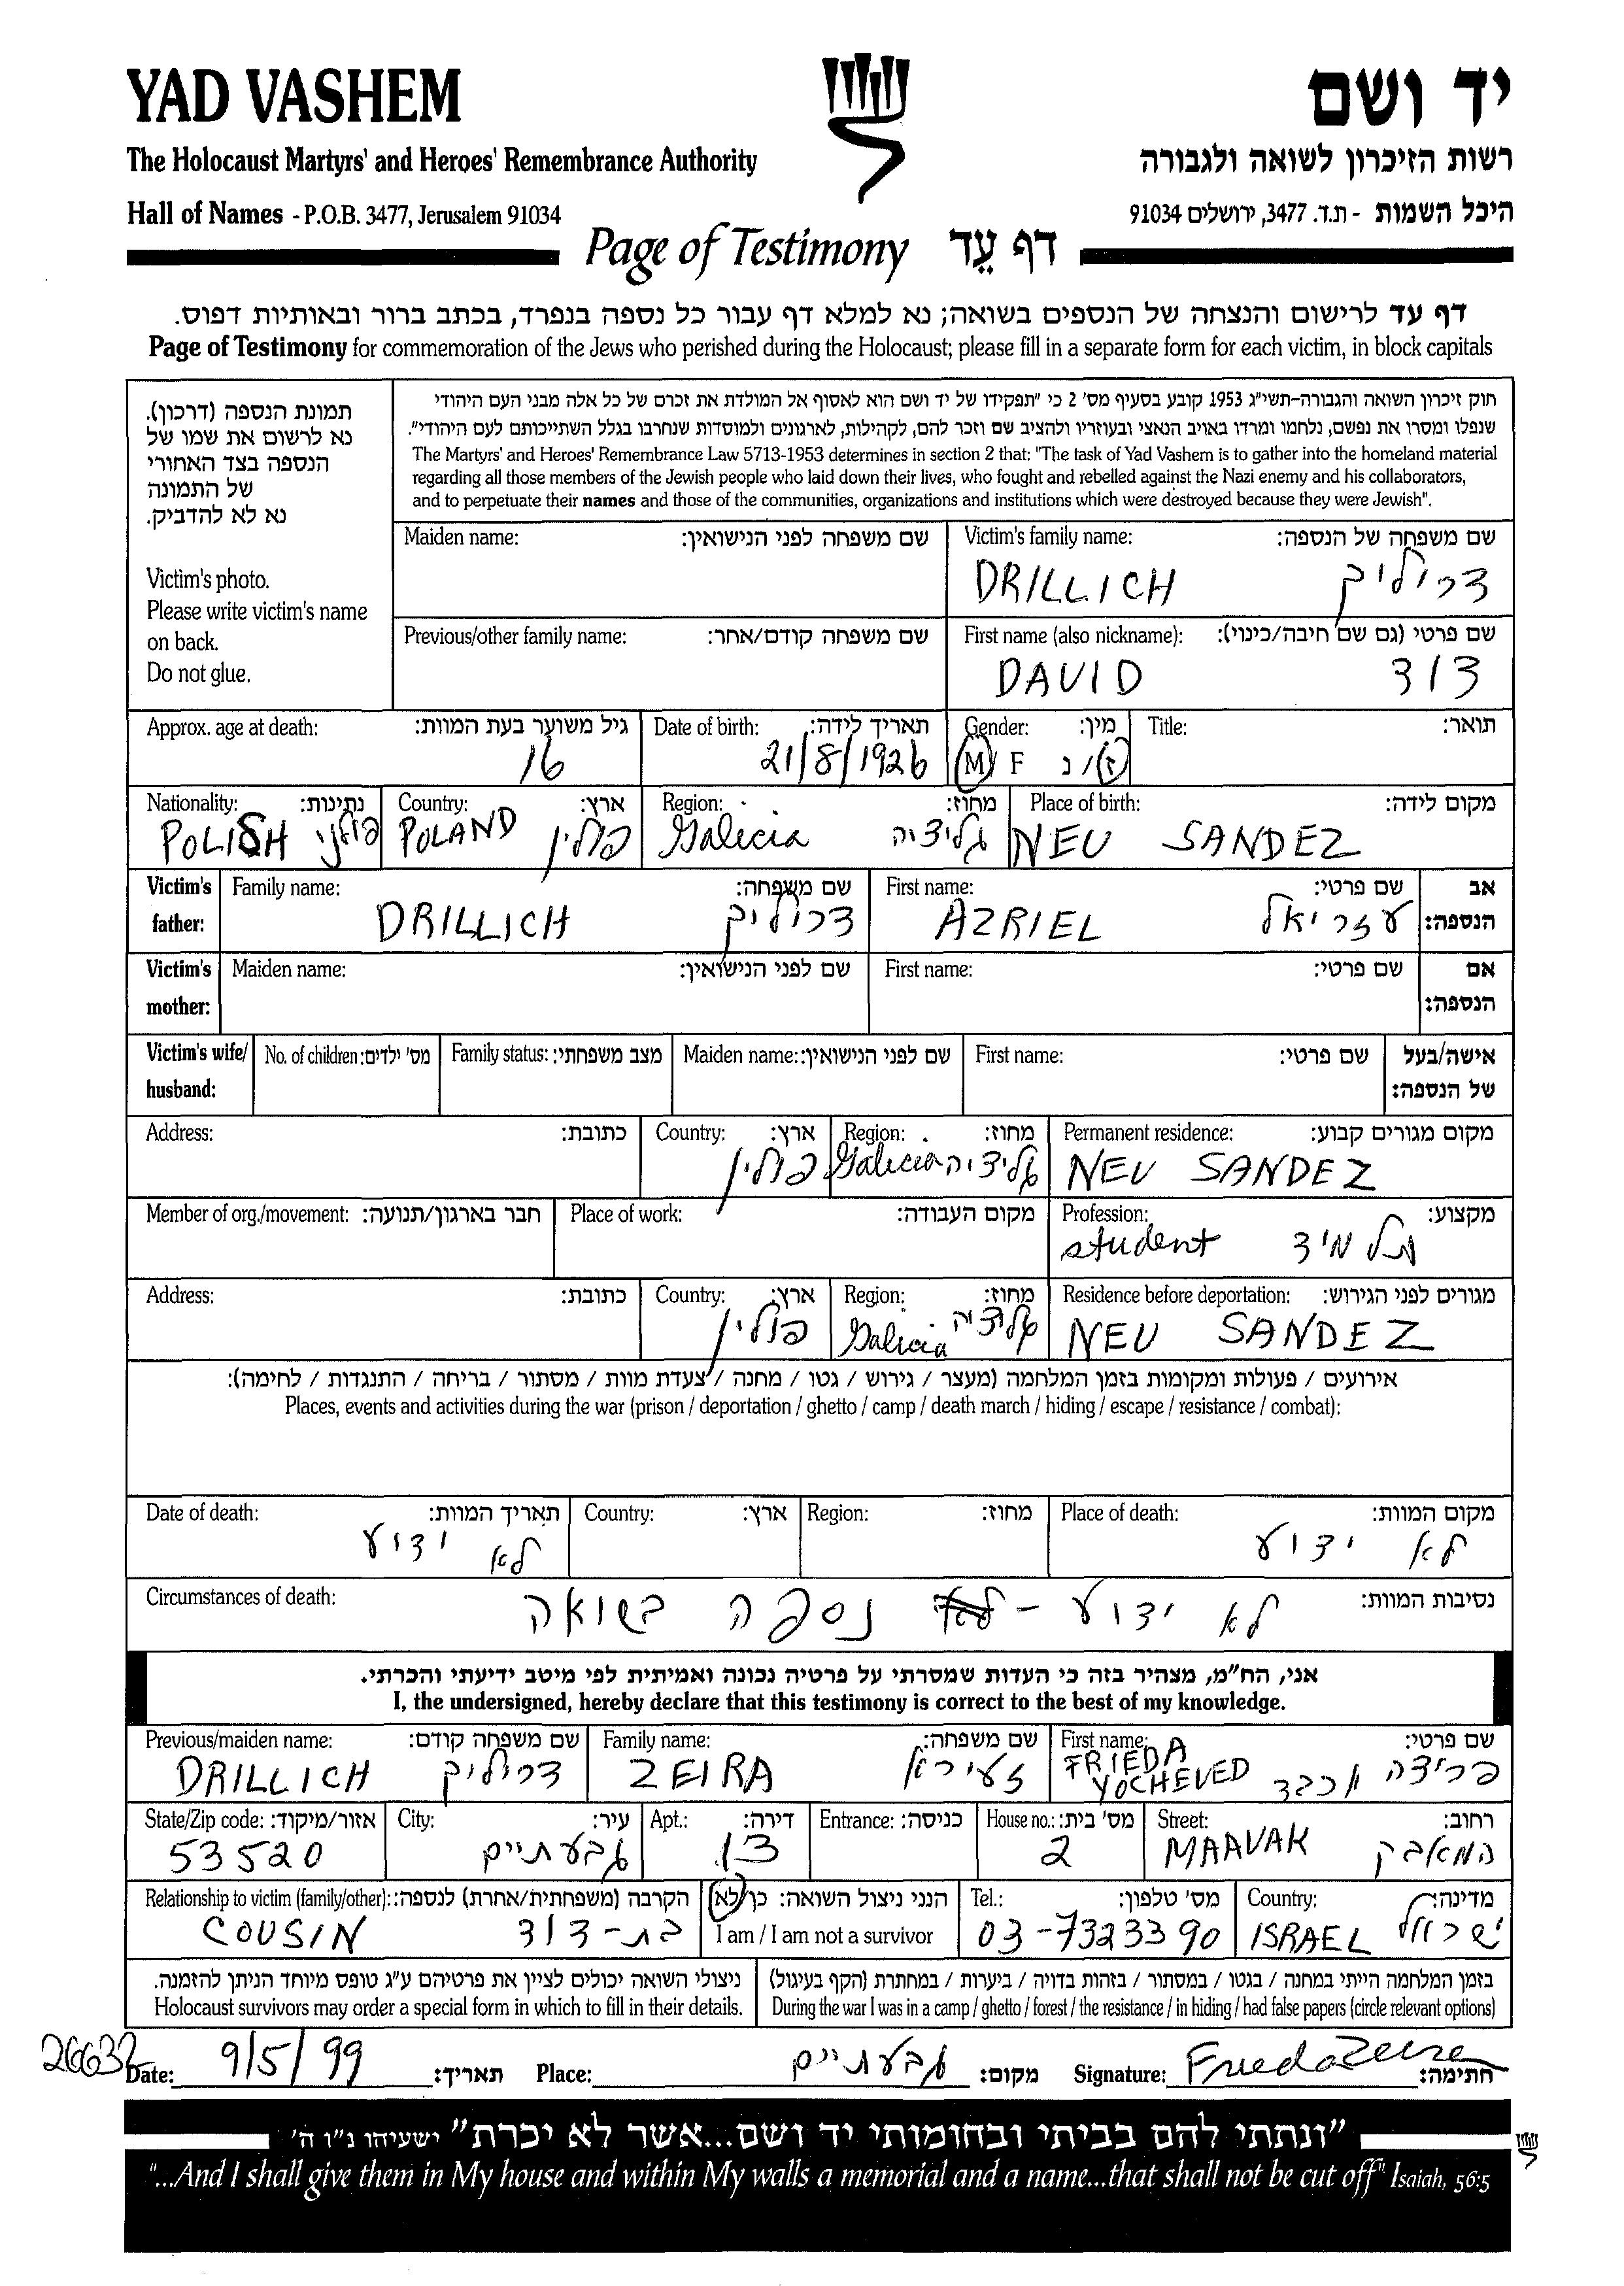 YAD VASHEM
יד ושם
The Holocaust Martyrs' and Heroes' Remembrance Authority
רשות הזיכרון לשואה ולגבורה
Hall of Names - P.O.B. 3477, Jerusalem 91034
היכל השמות - ת.ד. 3477, ירושלים 91034
Page of Testimony דף עֵד
דף עד לרישום והנצחה של הנספים בשואה; נא למלא דף עבור כל נספה בנפרד, בכתב ברור ובאותיות דפוס.
Page of Testimony for commemoration of the Jews who perished during the Holocaust; please fill in a separate form for each victim, in block capitals
תמונת הנספה (דרכון).
נא לרשום את שמו של
הנספה בצד האחורי
של התמונה
נא לא להדביק.
Victim's photo.
Please write victim's name
on back.
Do not glue.
חוק זיכרון השואה והגבורה-תשי"ג 1953 קובע בסעיף מס' 2 כי "תפקידו של יד ושם הוא לאסוף אל המולדת את זכרם של כל אלה מבני העם היהודי
שנפלו ומסרו את נפשם, נלחמו ומרדו באויב הנאצי ובעוזריו ולהציב שם וזכר להם, לקהילות, לארגונים ולמוסדות שנחרבו בגלל השתייכותם לעם היהודי".
The Martyrs' and Heroes' Remembrance Law 5713-1953 determines in section 2 that: "The task of Yad Vashem is to gather into the homeland material
regarding all those members of the Jewish people who laid down their lives, who fought and rebelled against the Nazi enemy and his collaborators,
and to perpetuate their names and those of the communities, organizations and institutions which were destroyed because they were Jewish".
Maiden name: שם משפחה לפני הנישואין:
Victim's family name: שם משפחה של הנספה:
DRILLICH דריליך
Previous/other family name: שם משפחה קודם/אחר:
First name (also nickname): שם פרטי (גם שם חיבה/כינוי):
DAVID דוד
Approx. age at death: גיל משוער בעת המוות:
16
Date of birth: תאריך לידה:
21/8/1926
Gender: מין:
M/ F ז/ נ
Title: תואר:
Nationality: נתינות:
POLISH פולני
Country: ארץ:
POLAND פולין
Region: מחוז:
Galicia גליציה
Place of birth: מקום לידה:
NEU SANDEZ
Victim's father: אב הנספה:
Family name: שם משפחה:
DRILLICH דריליך
First name: שם פרטי:
AZRIEL עזריאל
Victim's mother: אם הנספה:
Maiden name: שם לפני הנישואין:
First name: שם פרטי:
Victim's wife/ husband: אישה/בעל של הנספה:
No. of children: מס' ילדים:
Family status: מצב משפחתי:
Maiden name: שם לפני הנישואין:
First name: שם פרטי:
Address: כתובת:
Country: ארץ:
פולין
Region: מחוז:
Galicia גליציה
Permanent residence: מקום מגורים קבוע:
NEU SANDEZ
Member of org./movement: חבר בארגון/תנועה:
Place of work: מקום העבודה:
Profession: מקצוע:
student תלמיד
Address: כתובת:
Country: ארץ:
פולין
Region: מחוז:
Galicia גליציה
Residence before deportation: מגורים לפני הגירוש:
NEU SANDEZ
אירועים / פעולות ומקומות בזמן המלחמה (מעצר / גירוש / גטו / מחנה / צעדת מוות / מסתור / בריחה / התנגדות / לחימה):
Places, events and activities during the war (prison / deportation / ghetto / camp / death march / hiding / escape / resistance / combat):
Date of death: תאריך המוות:
לא ידוע
Country: ארץ:
Region: מחוז:
Place of death: מקום המוות:
לא ידוע
Circumstances of death: נסיבות המוות:
לא ידוע - נספה בשואה
אני, הח"מ, מצהיר בזה כי העדות שמסרתי על פרטיה נכונה ואמיתית לפי מיטב ידיעתי והכרתי.
I, the undersigned, hereby declare that this testimony is correct to the best of my knowledge.
Previous/maiden name: שם משפחה קודם:
DRILLICH דריליך
Family name: שם משפחה:
ZEIRA זעירא
First name: שם פרטי:
FRIEDA
YOCHEVED פרידה יוכבד
State/Zip code: אזור/מיקוד:
53520
City: עיר:
גבעתיים
Apt.: דירה:
13
Entrance: כניסה:
House no.: מס' בית:
2
Street: רחוב:
MAAVAK המאבק
Relationship to victim (family/other): הקרבה (משפחתית/אחרת) לנספה:
COUSIN בת-דוד
הנני ניצול השואה: כן/לא
I am / I am not a survivor
Tel.: מס' טלפון:
03-7323390
Country: מדינה:
ISRAEL ישראל
ניצולי השואה יכולים לציין את פרטיהם ע"ג טופס מיוחד הניתן להזמנה.
Holocaust survivors may order a special form in which to fill in their details.
בזמן המלחמה הייתי במחנה / בגטו / במסתור / בזהות בדויה / ביערות / במחתרת (הקף בעיגול)
During the war I was in a camp / ghetto / forest / the resistance / in hiding / had false papers (circle relevant options)
26632
Date: 9/5/99 תאריך:
Place: גבעתיים מקום:
Signature: Frieda Zeira חתימה:
"ונתתי להם בביתי ובחומותי יד ושם...אשר לא יכרת" ישעיהו נ"ו ה'
"...And I shall give them in My house and within My walls a memorial and a name...that shall not be cut off" Isaiah, 56:5